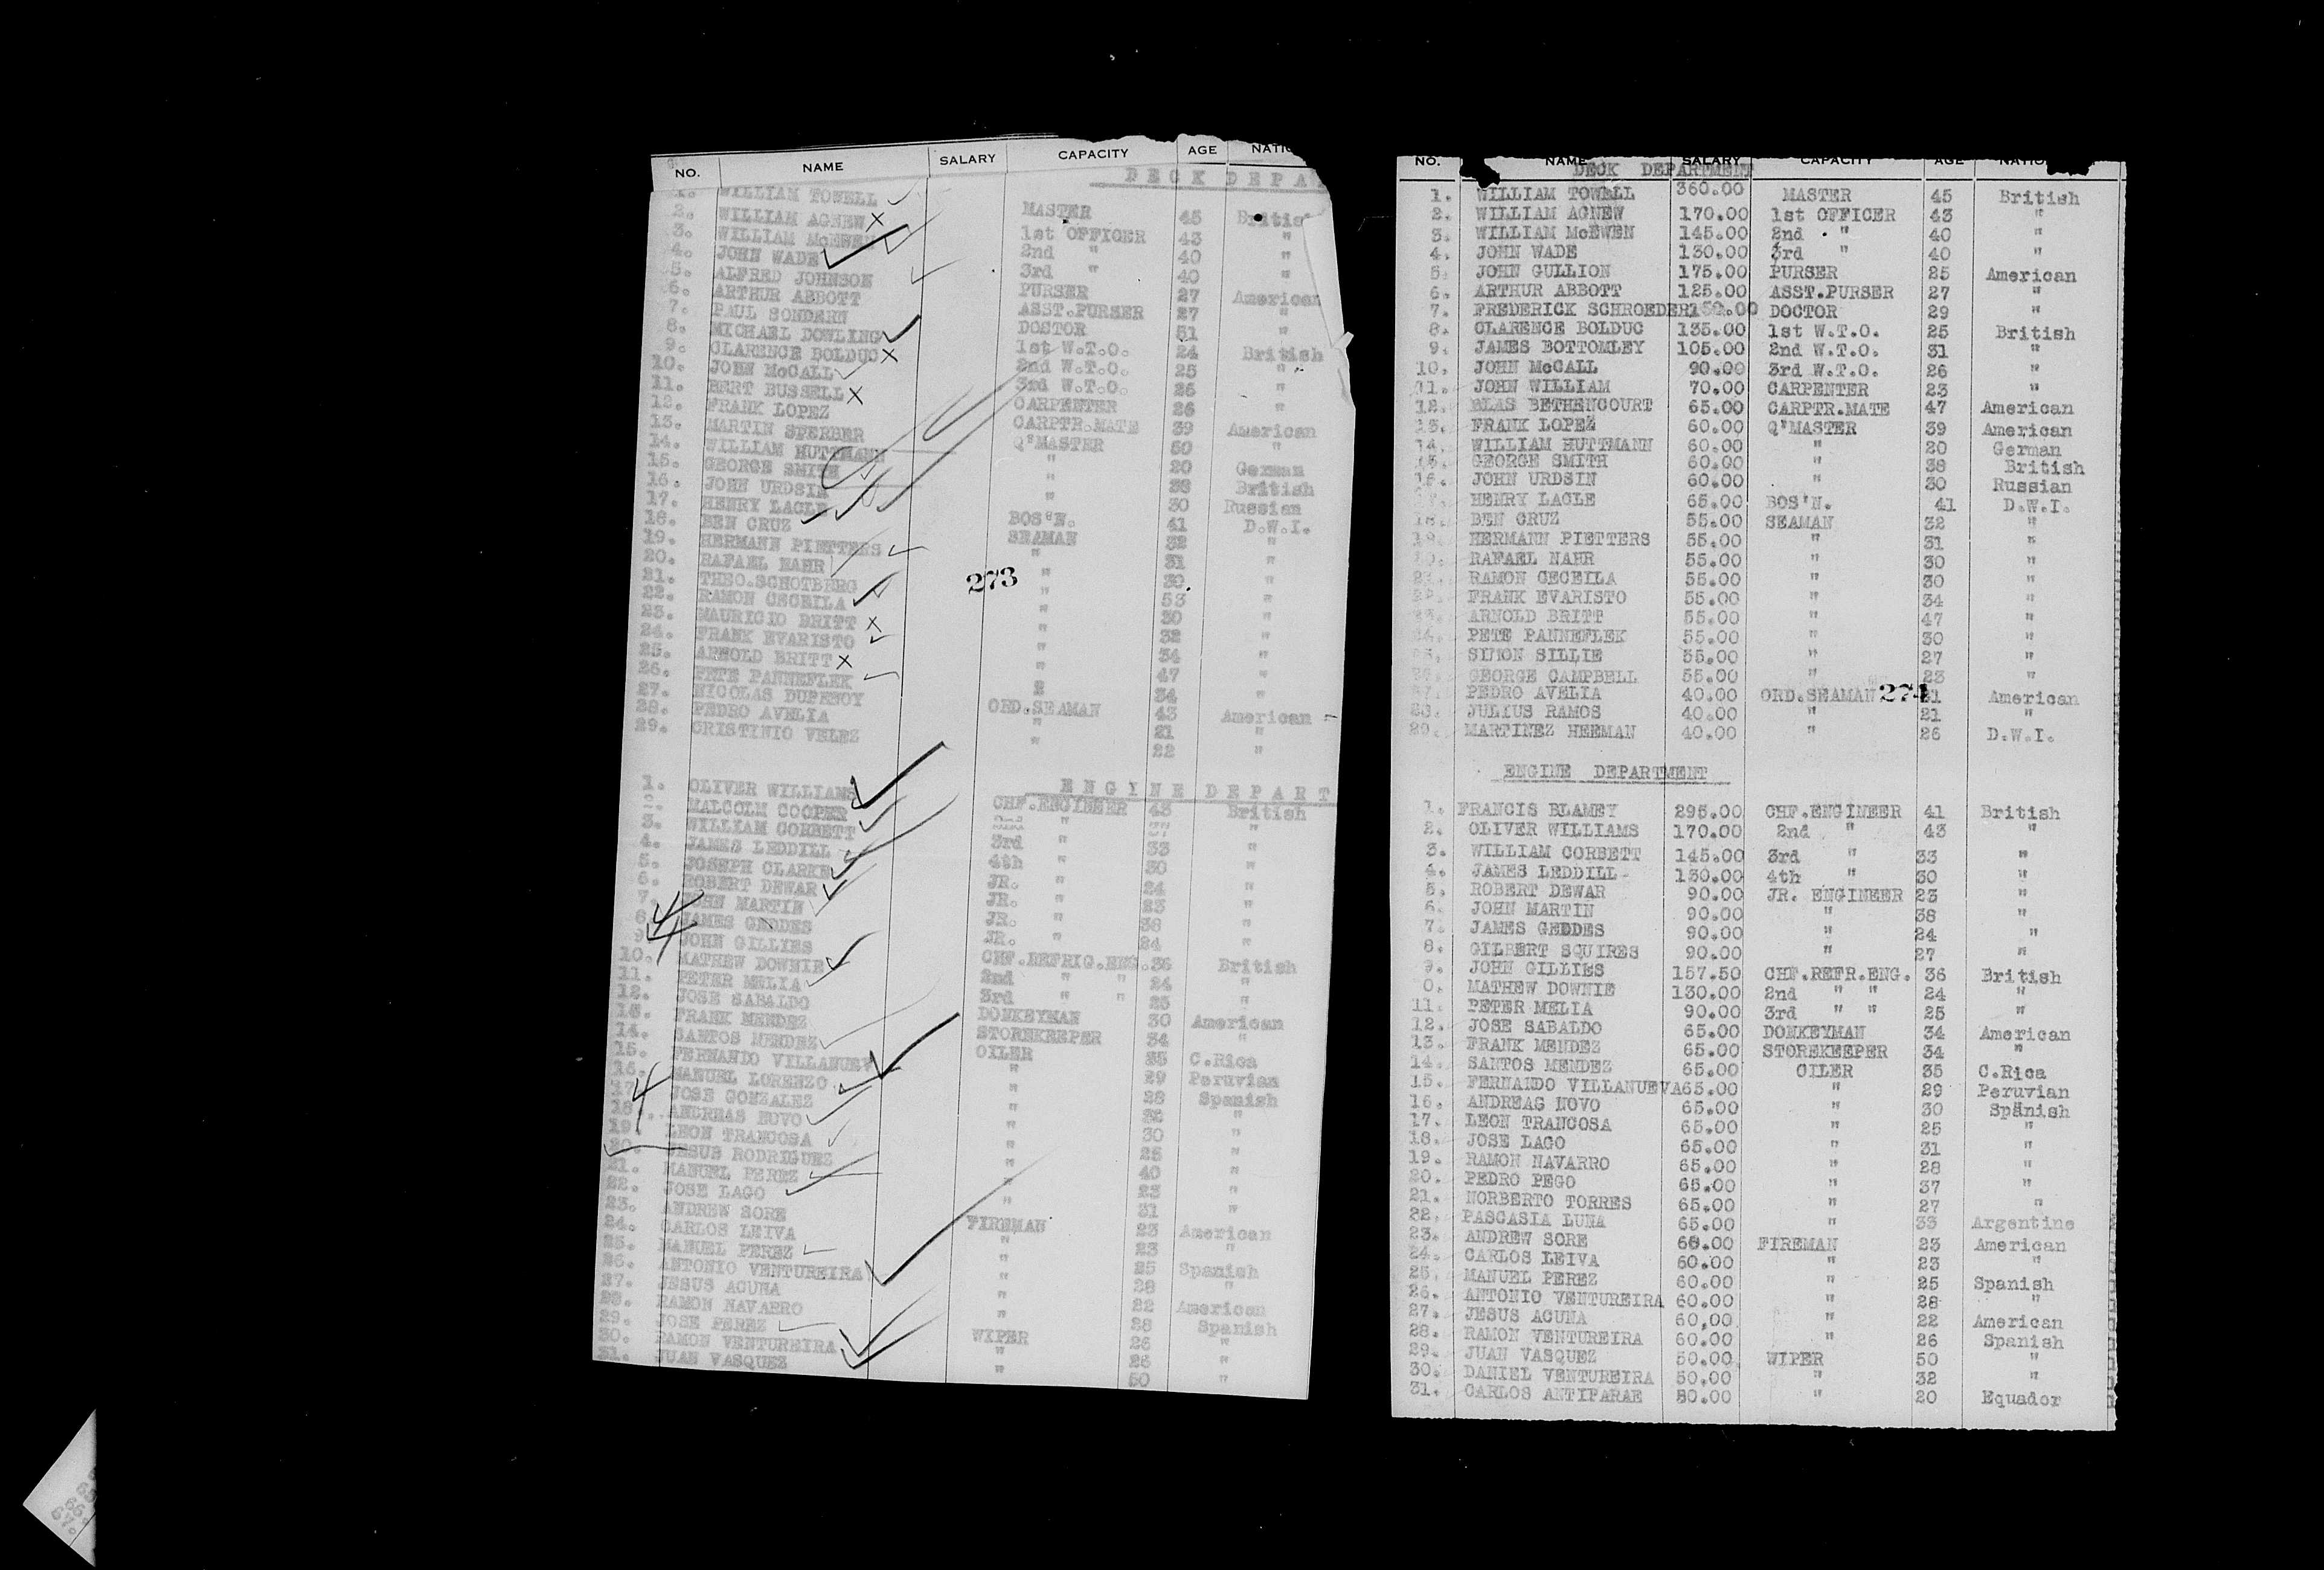 NO. NAME SALARY CAPACITY AGE NATIO
DECK DEPA
1. WILLIAM TOWELL MASTER 45 Britis
2. WILLIAM AGNEW 1st OFFICER 43 "
3. WILLIAM McEWEN 2nd " 40 "
4. JOHN WADE 3rd " 40 "
5. ALFRED JOHNSON PURSER 27 American
6. ARTHUR ABBOTT ASST.PURSER 27 "
7. PAUL SONDERN DOCTOR 51 "
8. MICHAEL DOWLING 1st W.T.O. 24 British
9. CLARENCE BOLDUC 2nd W.T.O. 25 "
10. JOHN McCALL 3rd W.T.O. 26 "
11. BERT BUSSELL CARPENTER 26 "
12. FRANK LOPEZ CARPTR.MATE 39 American
13. MARTIN SFERBER Q'MASTER 50 "
14. WILLIAM HUTTMANN " 20 German
15. GEORGE SMITH " 38 British
16. JOHN URDSIN " 30 Russian
17. HENRY LACLE BOS'N. 41 D.W.I.
18. BEN CRUZ SEAMAN 32 "
19. HERMANN PIETTERS " 31 "
20. RAFAEL NAHR " 30 "
21. THEO.SCHOTBERG " 53 "
22. RAMON CECEILA " 30 "
23. MAURICIO BRITT " 32 "
24. FRANK EVARISTO " 34 "
25. ARNOLD BRITT " 47 "
26. PETE PANNEFLEK " 34 "
27. NICOLAS DUFENOY ORD.SEAMAN 43 American
28. PEDRO AVELIA " 21 "
29. CRISTINIO VELEZ " 22 "
273
ENGINE DEPART
1. OLIVER WILLIAMS CHF.ENGINEER 43 British
2. MALCOLM COOPER 2nd " 37 "
3. WILLIAM CORBETT 3rd " 33 "
4. JAMES LEDDILL 4th " 30 "
5. JOSEPH CLARKE JR. " 24 "
6. ROBERT DEWAR JR. " 23 "
7. JOHN MARTIN JR. " 38 "
8. JAMES GEDDES JR. " 24 "
9. JOHN GILLIES CHF.REFRIG.ENG. 36 British
10. MATHEW DOWNIE 2nd " " 24 "
11. PETER MELIA 3rd " " 25 "
12. JOSE SABALDO DONKEYMAN 30 American
13. FRANK MENDEZ STOREKEEPER 34 "
14. SANTOS MENDEZ OILER 35 C.Rica
15. FERNANDO VILLANUEV " 29 Peruvian
16. MANUEL LORENZO " 28 Spanish
17. JOSE GONZALEZ " 32 "
18. ANDREAS NOVO " 30 "
19. LEON TRANCOSA " 25 "
20. JESUS RODRIGUEZ " 40 "
21. MANUEL PEREZ " 23 "
22. JOSE LAGO " 31 "
23. ANDREW SORE FIREMAN 23 American
24. CARLOS LEIVA " 23 "
25. MANUEL PEREZ " 25 Spanish
26. ANTONIO VENTUREIRA " 28 "
27. JESUS ACUNA " 22 American
28. RAMON NAVARRO " 28 Spanish
29. JOSE PEREZ WIPER 26 "
30. RAMON VENTUREIRA " 26 "
31. JUAN VASQUEZ " 50 "
NO. NAME SALARY CAPACITY AGE NATIO
DECK DEPARTMENT
1. WILLIAM TOWELL 360.00 MASTER 45 British
2. WILLIAM AGNEW 170.00 1st OFFICER 43 "
3. WILLIAM McEWEN 145.00 2nd " 40 "
4. JOHN WADE 130.00 3rd " 40 "
5. JOHN GULLION 175.00 PURSER 25 American
6. ARTHUR ABBOTT 125.00 ASST.PURSER 27 "
7. FREDERICK SCHROEDER 150.00 DOCTOR 29 "
8. CLARENCE BOLDUC 135.00 1st W.T.O. 25 British
9. JAMES BOTTOMLEY 105.00 2nd W.T.O. 31 "
10. JOHN McCALL 90.00 3rd W.T.O. 26 "
11. JOHN WILLIAM 70.00 CARPENTER 23 "
12. BLAS BETHENCOURT 65.00 CARPTR.MATE 47 American
13. FRANK LOPEZ 60.00 Q'MASTER 39 American
14. WILLIAM HUTTMANN 60.00 " 20 German
15. GEORGE SMITH 60.00 " 38 British
16. JOHN URDSIN 60.00 " 30 Russian
17. HENRY LACLE 65.00 BOS'N. 41 D.W.I.
18. BEN CRUZ 55.00 SEAMAN 32 "
19. HERMANN PIETTERS 55.00 " 31 "
20. RAFAEL NAHR 55.00 " 30 "
21. RAMON CECEILA 55.00 " 30 "
22. FRANK EVARISTO 55.00 " 34 "
23. ARNOLD BRITT 55.00 " 47 "
24. PETE PANNEFLEK 55.00 " 30 "
25. SIMON SILLIE 55.00 " 27 "
26. GEORGE CAMPBELL 55.00 " 23 "
27. PEDRO AVELIA 40.00 ORD.SEAMAN 274 21 American
28. JULIUS RAMOS 40.00 " 21 "
29. MARTINEZ HEEMAN 40.00 " 26 D.W.I.
ENGINE DEPARTMENT
1. FRANCIS BLAMEY 295.00 CHF.ENGINEER 41 British
2. OLIVER WILLIAMS 170.00 2nd " 43 "
3. WILLIAM CORBETT 145.00 3rd " 33 "
4. JAMES LEDDILL 130.00 4th " 30 "
5. ROBERT DEWAR 90.00 JR. ENGINEER 23 "
6. JOHN MARTIN 90.00 " 38 "
7. JAMES GEDDES 90.00 " 24 "
8. GILBERT SQUIRES 90.00 " 27 "
9. JOHN GILLIES 157.50 CHF.REFR.ENG. 36 British
0. MATHEW DOWNIE 130.00 2nd " " 24 "
11. PETER MELIA 90.00 3rd " " 25 "
12. JOSE SABALDO 65.00 DONKEYMAN 34 American
13. FRANK MENDEZ 65.00 STOREKEEPER 34 "
14. SANTOS MENDEZ 65.00 OILER 35 C.Rica
15. FERNANDO VILLANUEVA 65.00 " 29 Peruvian
16. ANDREAG NOVO 65.00 " 30 Spanish
17. LEON TRANCOSA 65.00 " 25 "
18. JOSE LAGO 65.00 " 31 "
19. RAMON NAVARRO 65.00 " 28 "
20. PEDRO PEGO 65.00 " 37 "
21. NORBERTO TORRES 65.00 " 27 "
22. PASCASIA LUNA 65.00 " 33 Argentine
23. ANDREW SORE 60.00 FIREMAN 23 American
24. CARLOS LEIVA 60.00 " 23 "
25. MANUEL PEREZ 60.00 " 25 Spanish
26. ANTONIO VENTUREIRA 60.00 " 28 "
27. JESUS ACUNA 60,00 " 22 American
28. RAMON VENTUREIRA 60.00 " 26 Spanish
29. JUAN VASQUEZ 50.00 WIPER 50 "
30. DANIEL VENTUREIRA 50.00 " 32 "
31. CARLOS ANTIPARAE 50.00 " 20 Equador
65.
66.
67.